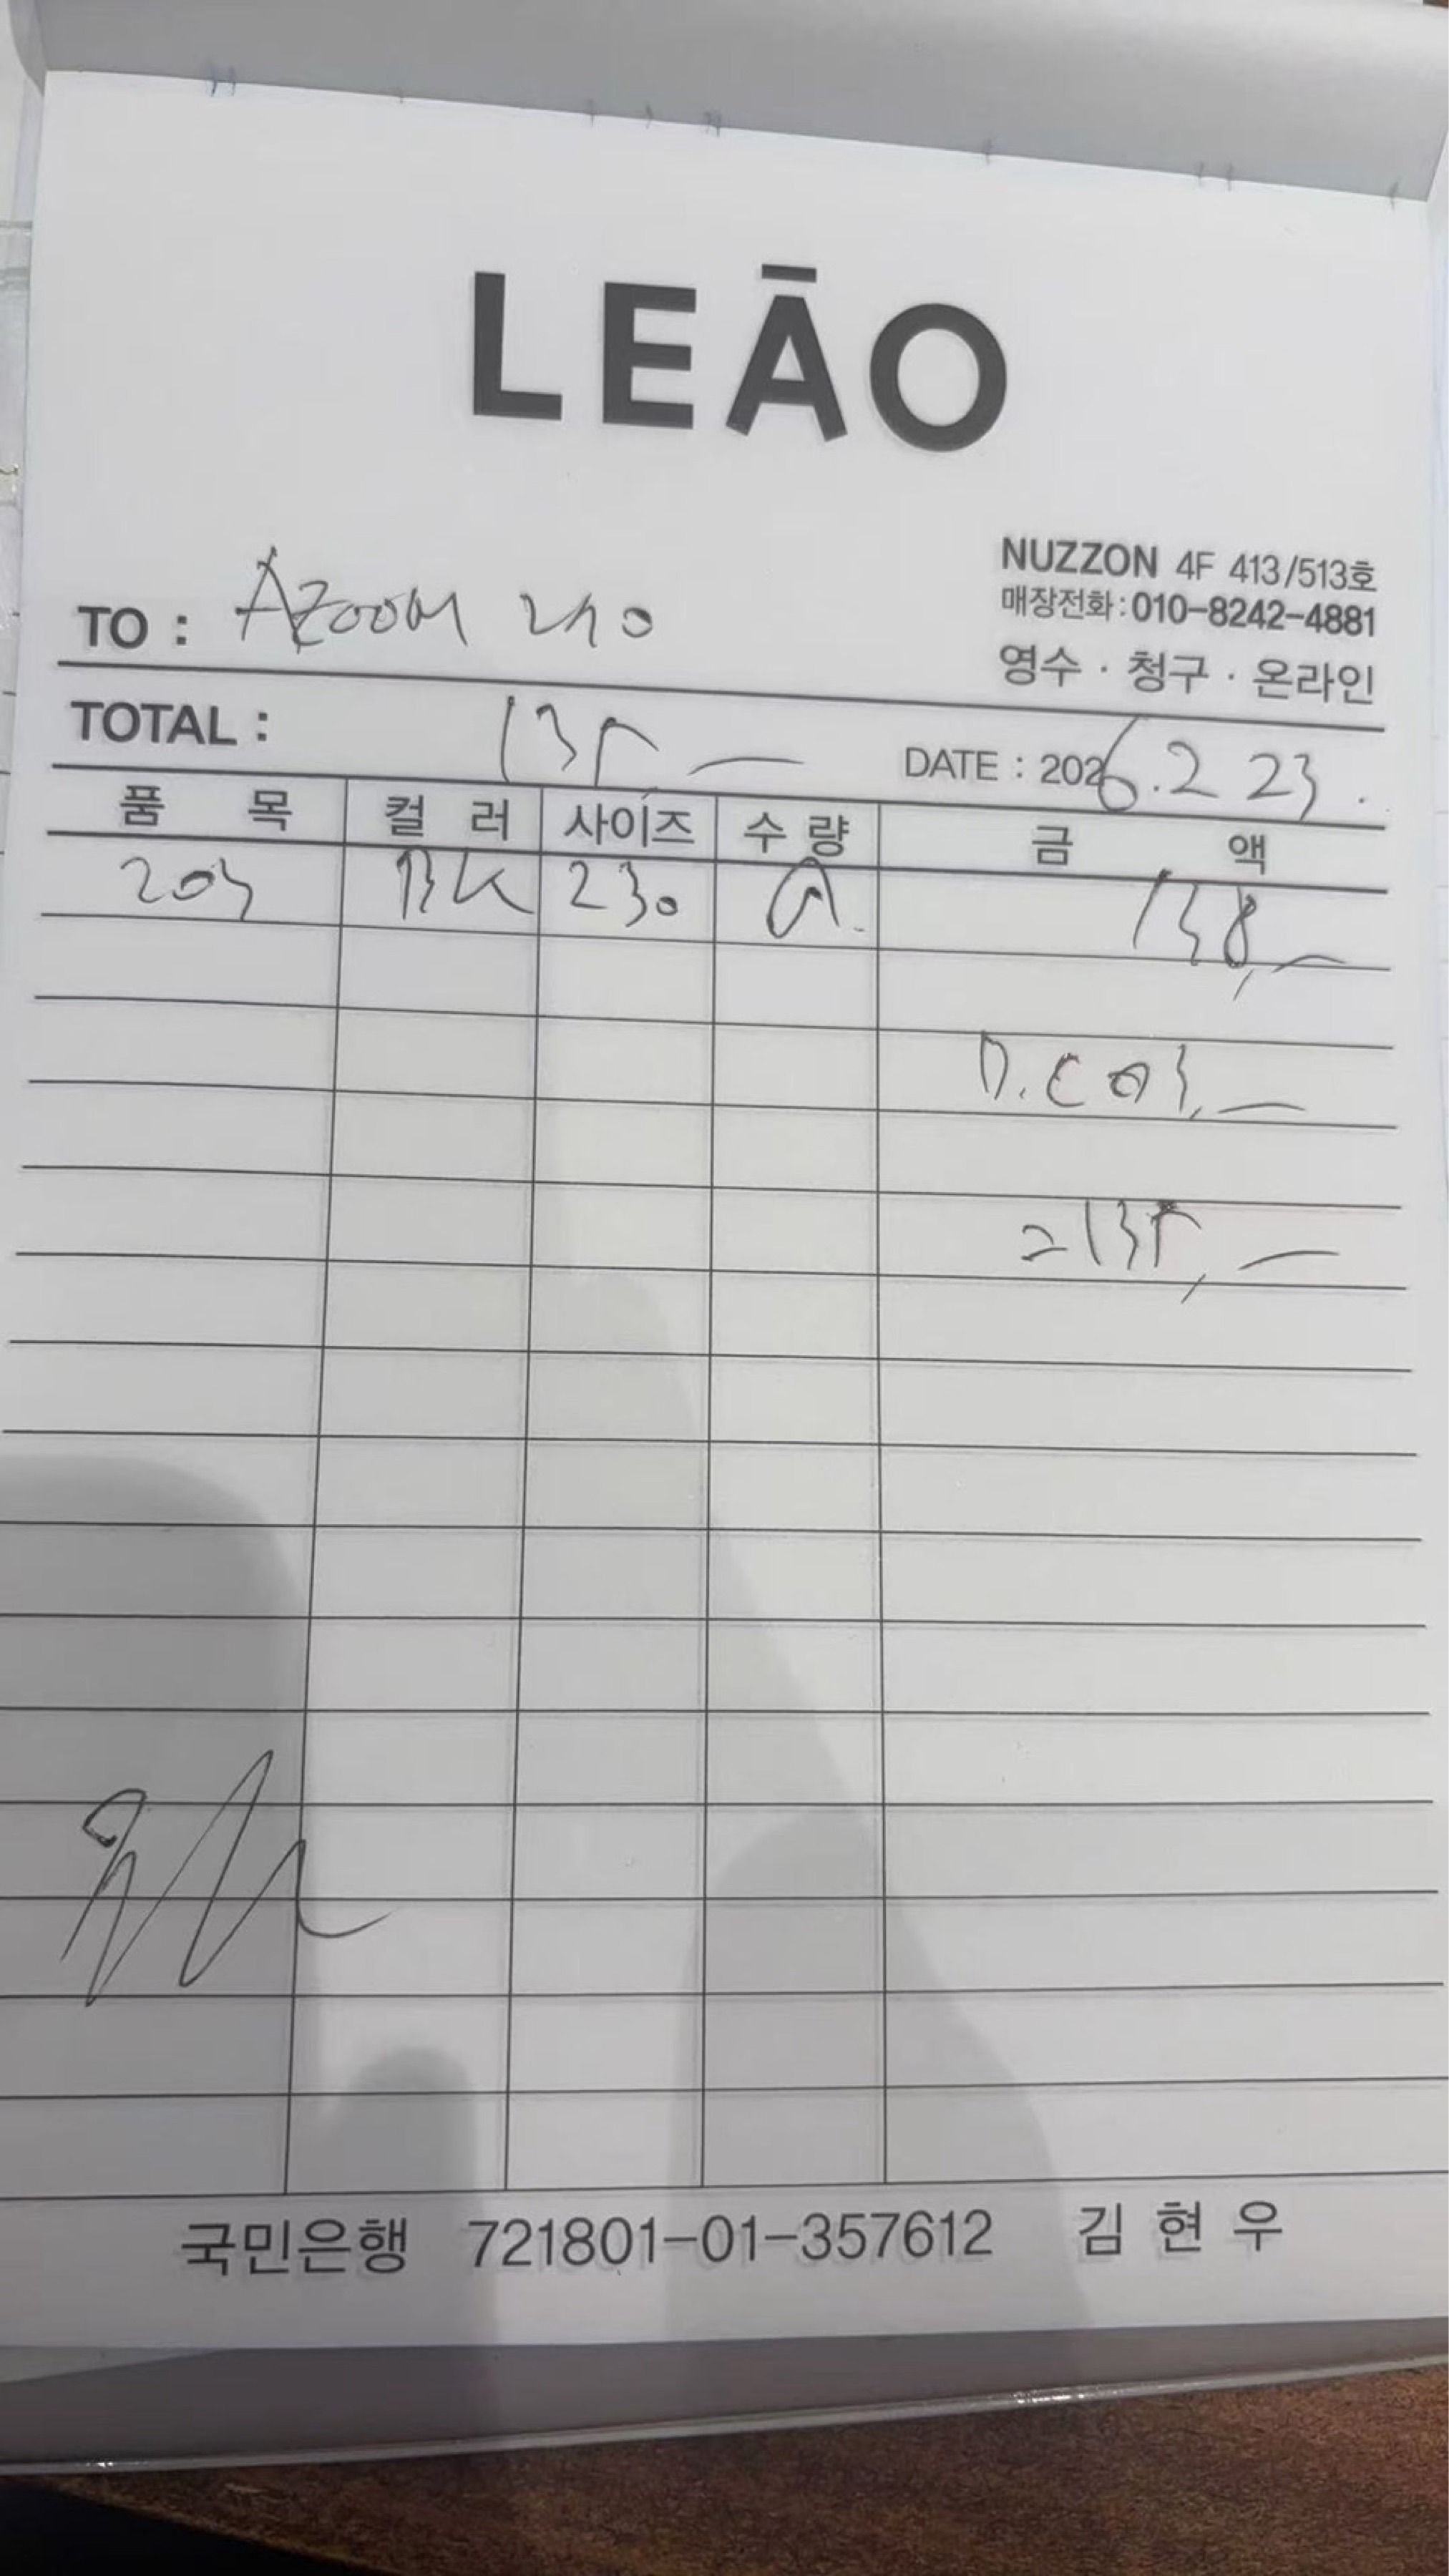 LEĀO
NUZZON 4F 413/513호
매장전화:010-8242-4881
TO : AZOOM
영수 · 청구 · 온라인
TOTAL : 135 —
DATE : 2026.2 23.
품 목 컬 러 사이즈 수 량 금 액
203 BK 230 138,—
D.C 3,—
=135,—
국민은행 721801-01-357612 김 현 우